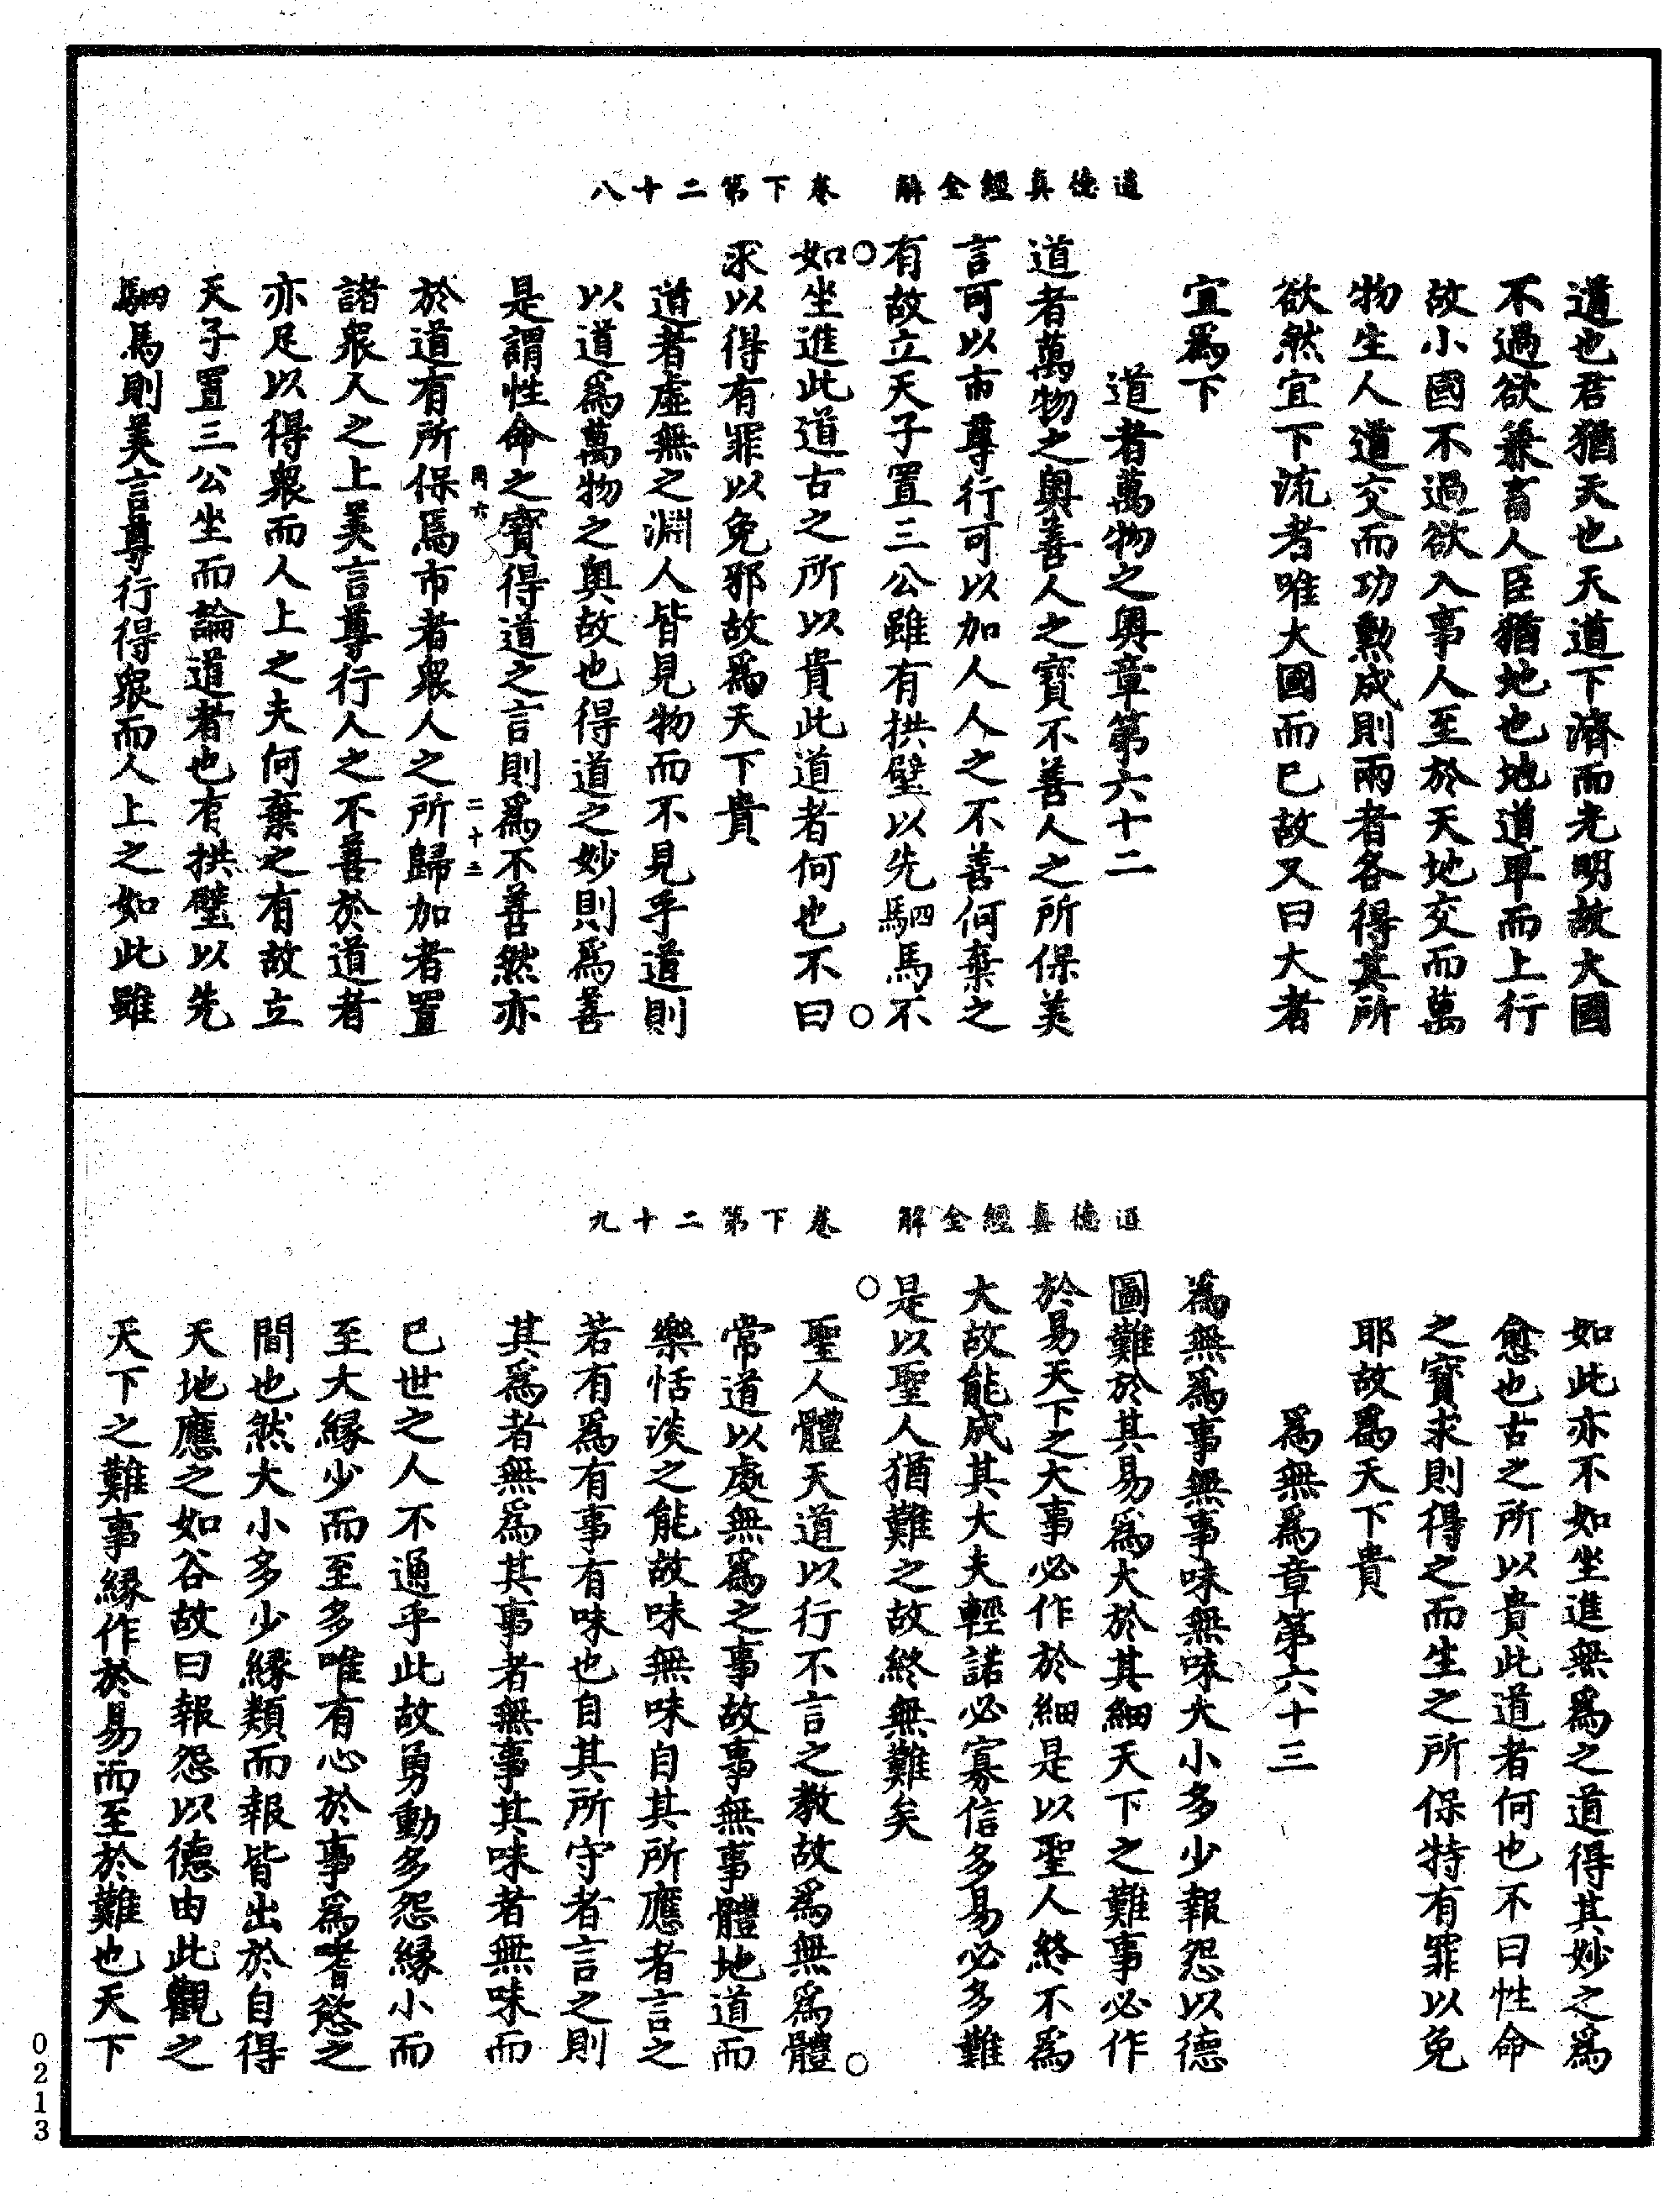 道德真經全解　卷下第二十八
道也君猶天也天道下濟而光明故大國
不過欲兼畜人臣猶地也地道卑而上行
故小國不過欲入事人至於天地交而萬
物生人道交而功勲成則兩者各得其所
欲然宜下流者唯大國而已故又曰大者
宜爲下
道者萬物之奥章第六十二
道者萬物之奥善人之寳不善人之所保美
言可以市尊行可以加人人之不善何棄之
有故立天子置三公雖有拱璧以先駟馬不
如坐進此道古之所以貴此道者何也不曰
求以得有罪以免邪故爲天下貴
道者虛無之淵人皆見物而不見乎道則
以道爲萬物之奥故也得道之妙則爲善
是謂性命之寳得道之言則爲不善然亦
罔六　二十三
於道有所保焉市者衆人之所歸加者置
諸衆人之上美言尊行人之不善於道者
亦足以得衆而人上之夫何棄之有故立
天子置三公坐而論道者也有拱璧以先
駟馬則美言尊行得衆而人上之如此雖
道德真經全解　卷下第二十九
如此亦不如坐進無爲之道得其妙之爲
愈也古之所以貴此道者何也不曰性命
之寳求則得之而生之所保特有罪以免
耶故爲天下貴
爲無爲章第六十三
爲無爲事無事味無味大小多少報怨以德
圖難於其易爲大於其細天下之難事必作
於易天下之大事必作於細是以聖人終不爲
大故能成其大夫輕諾必寡信多易必多難
是以聖人猶難之故終無難矣
聖人體天道以行不言之教故爲無爲體
常道以處無爲之事故事無事體地道而
樂恬淡之能故味無味自其所應者言之
若有爲有事有味也自其所守者言之則
其爲者無爲其事者無事其味者無味而
已世之人不通乎此故勇動多怨緣小而
至大緣少而至多唯有心於事爲嗜慾之
間也然大小多少緣類而報皆出於自得
天地應之如谷故曰報怨以德由此觀之
天下之難事緣作於易而至於難也天下
0213